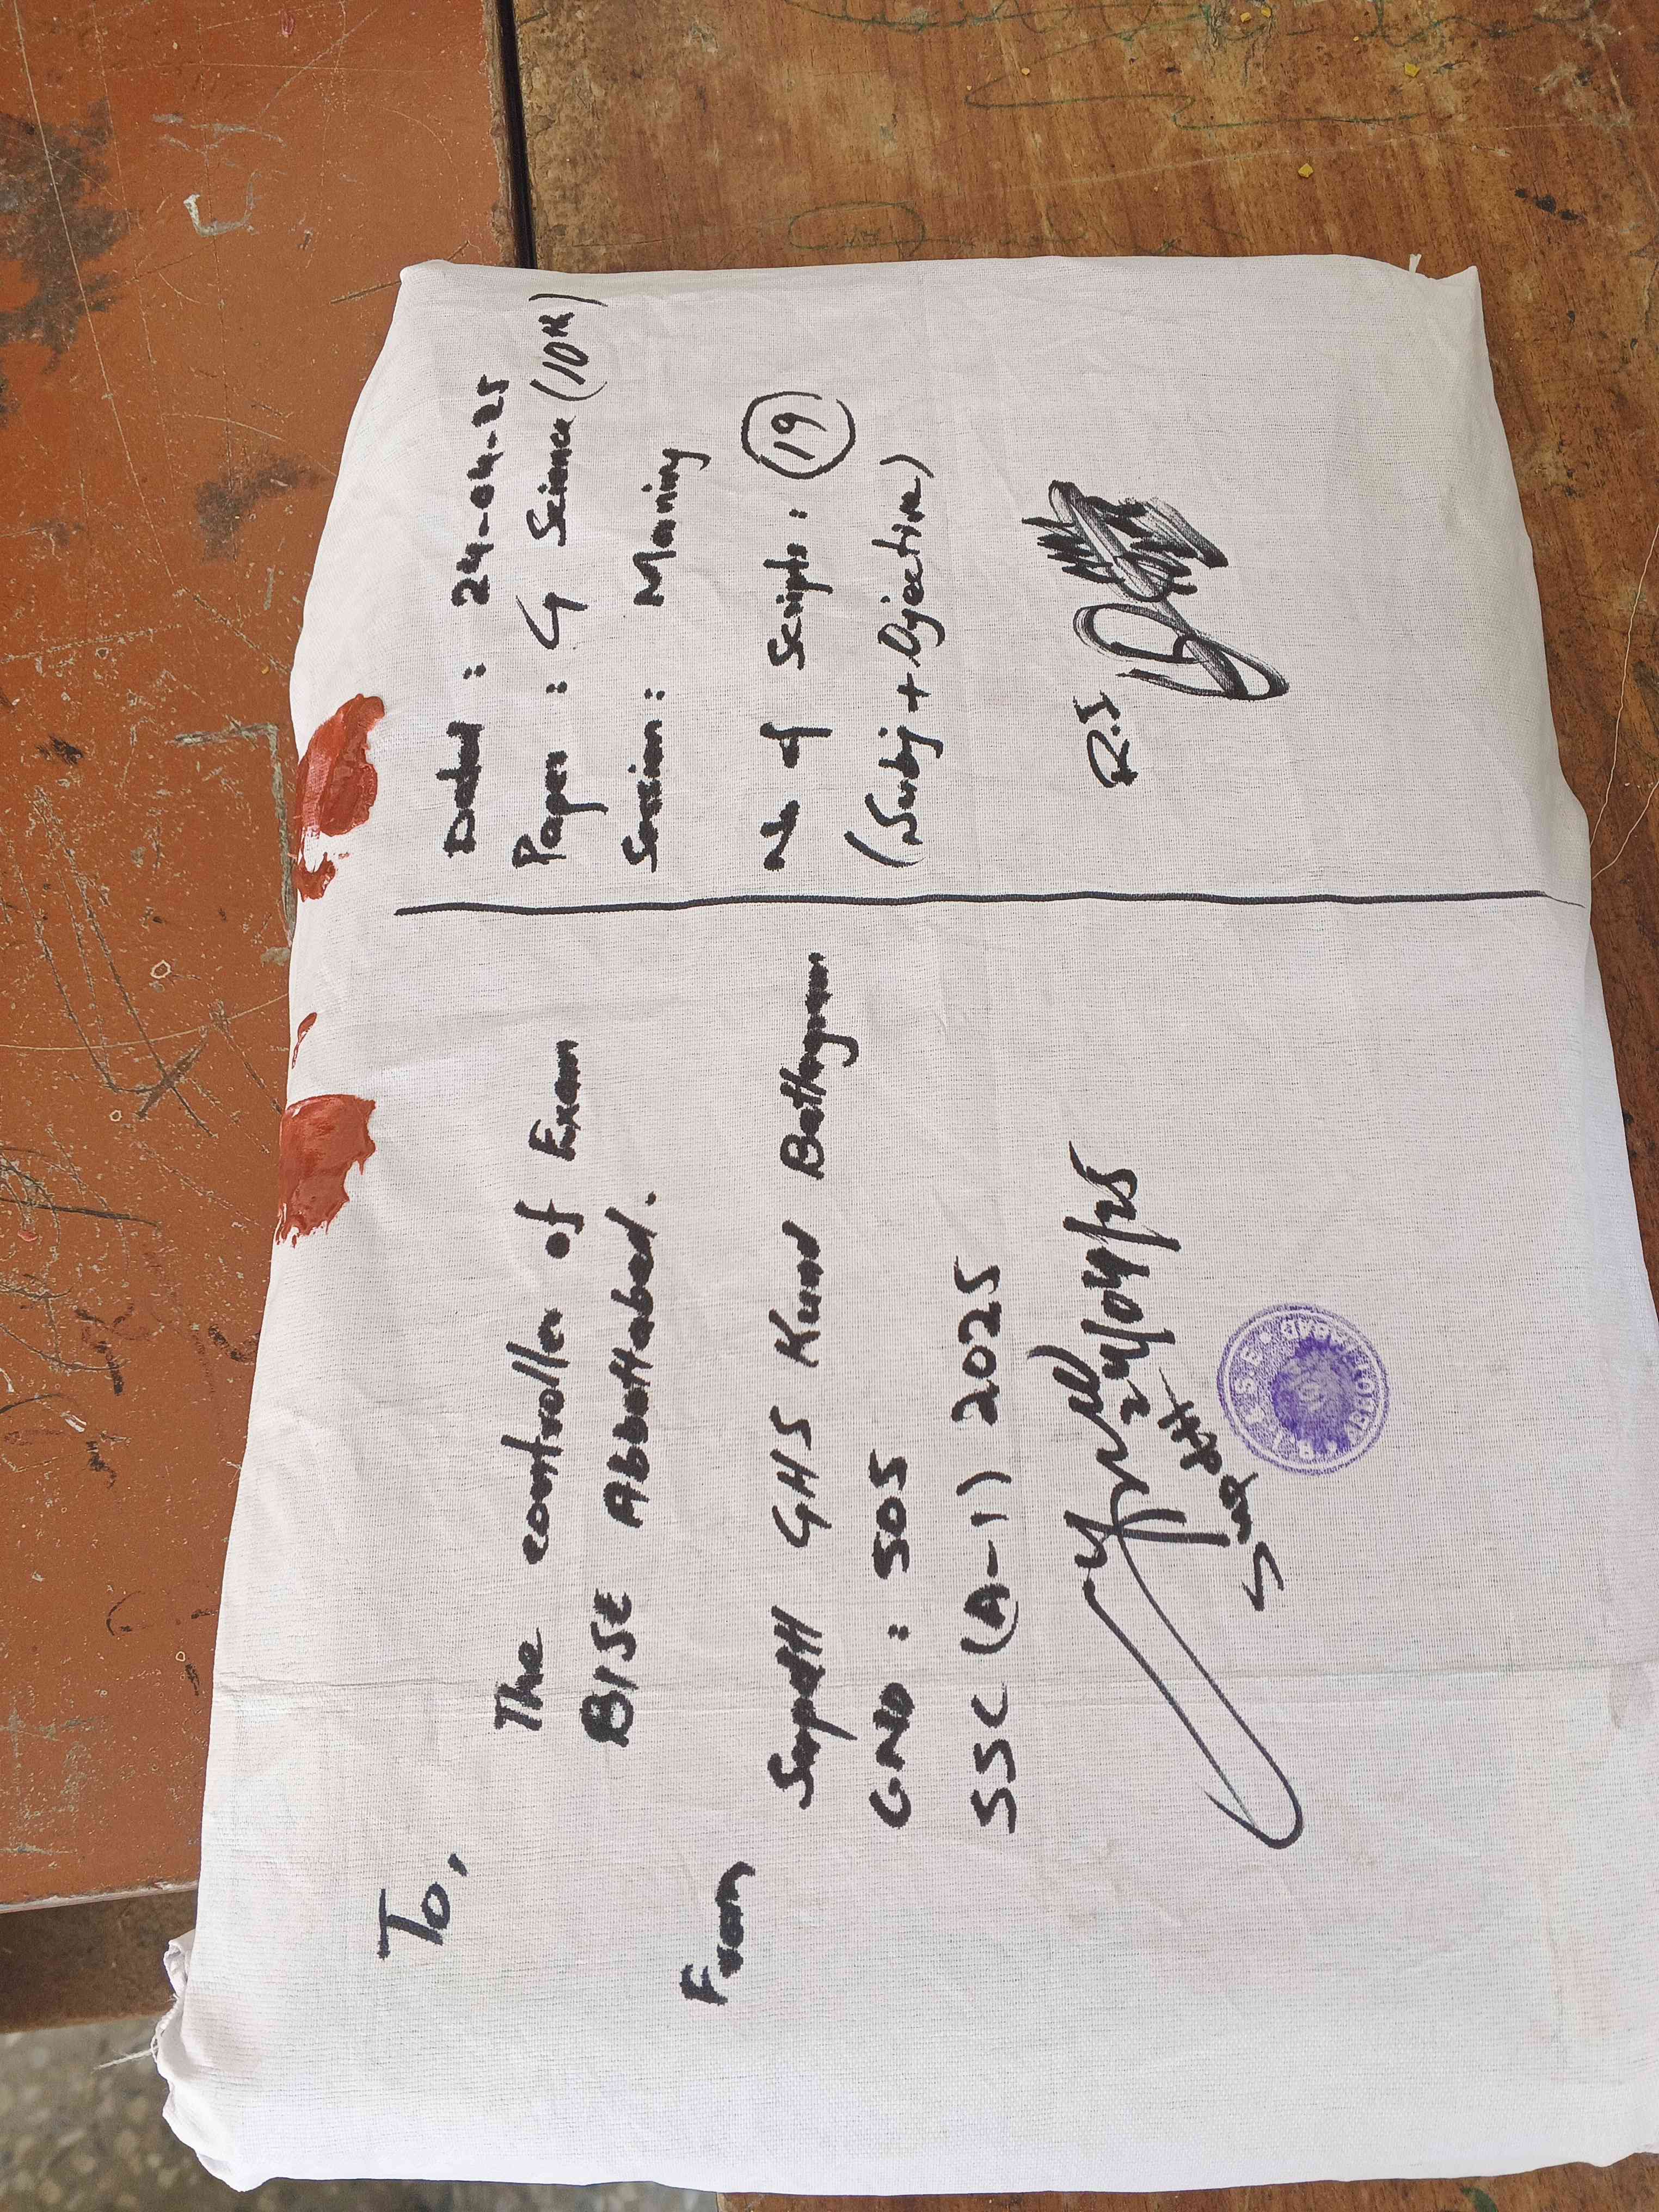 To,
The controller of Exam
BISE Abbottabad.
From
Supdtt GHS Kuza Battagram
CNO : 505
SSC (A-1) 2025
24/04/25
Supdtt
B.I.S.E. ABBOTTABAD
Dated : 24-04-25
Paper : G Science (10th)
Session : Morning
No of Scripts : 19
(Subj + Objective)
R.I